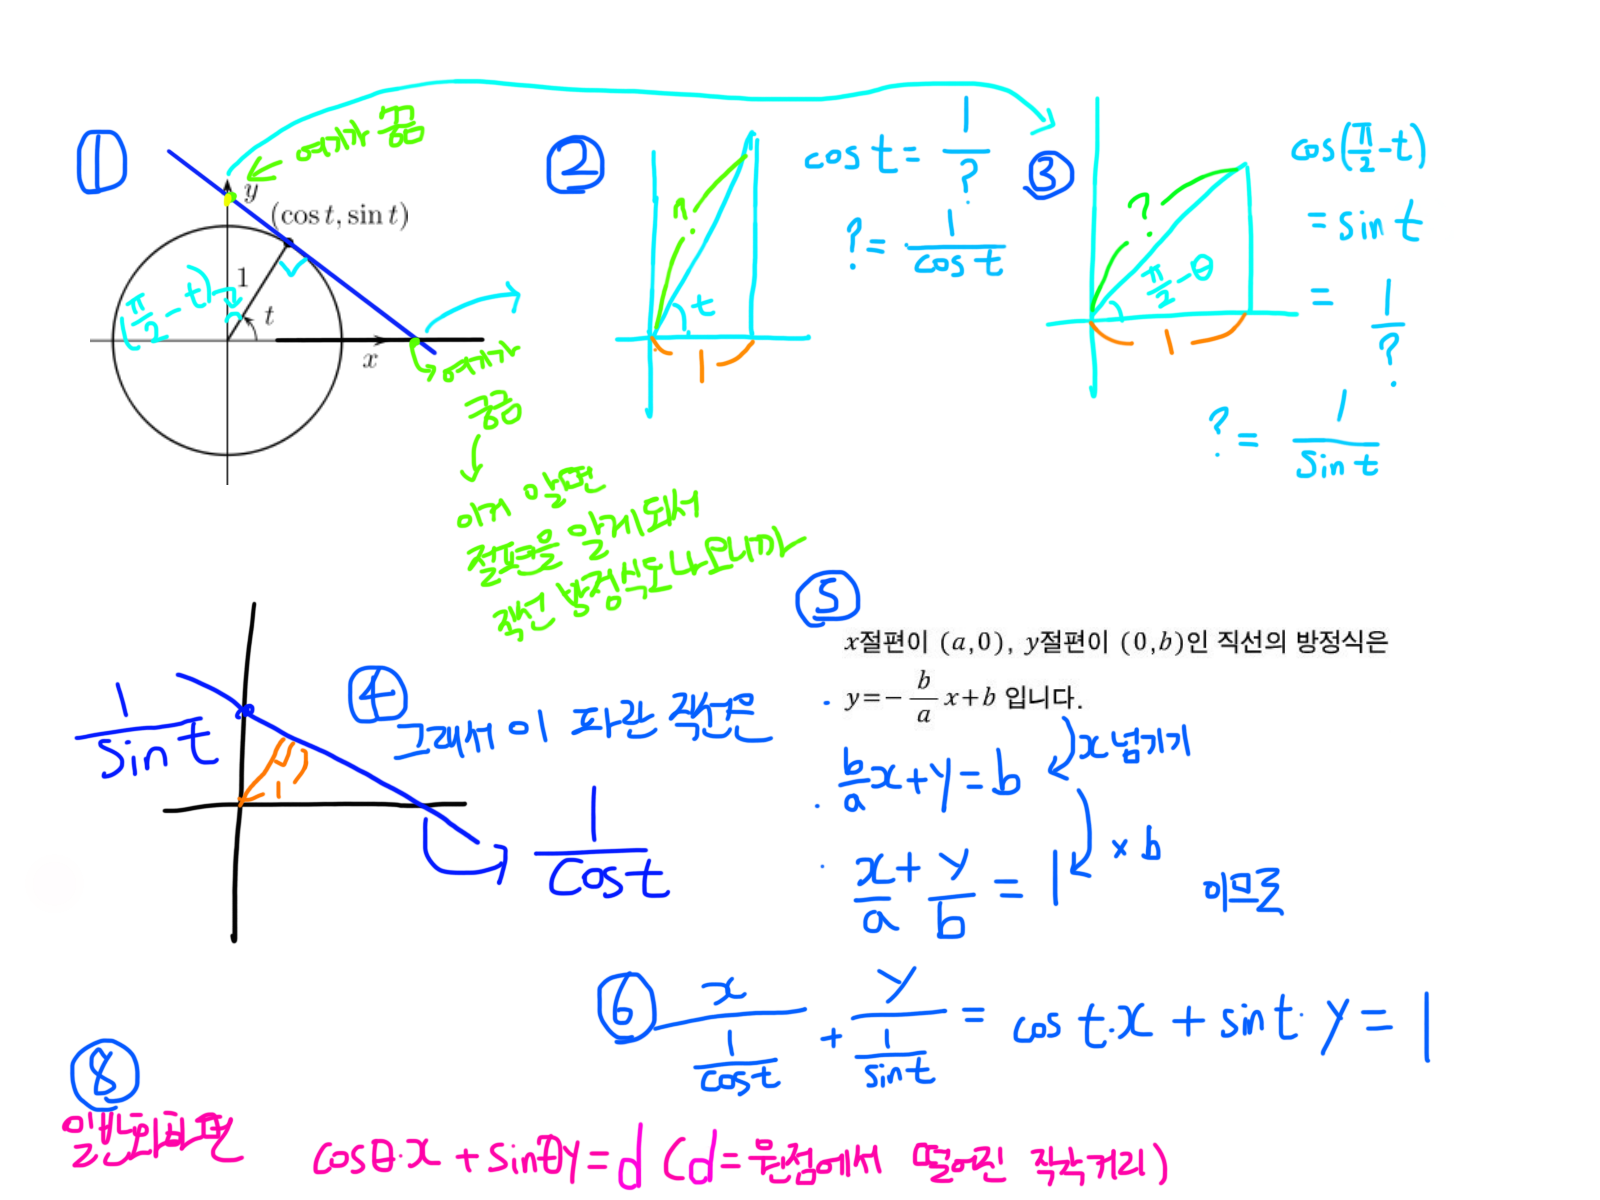 ①
여기가 궁금
y
(cos t, sin t)
1
(π/2 - t)
t
x
여기가
궁금
이거 알면
절편을 알게되서
직선 방정식도 나오니까
②
?
t
1
cos t = 1/?
? = 1/cos t
③
?
π/2 - θ
1
cos(π/2 - t)
= sin t
= 1/?
? = 1/sin t
④
그래서 이 파란 직선은
1/sin t
1
1/cos t
⑤
x절편이 (a,0), y절편이 (0,b)인 직선의 방정식은
y=- b/a x+b 입니다.
x 넘기기
b/a x + y = b
× b
x/a + y/b = 1
이므로
⑥ x/(1/cos t) + y/(1/sin t) = cos t·x + sin t·y = 1
⑧
일반화하면
cosθ·x + sinθy = d (d = 원점에서 떨어진 직각거리)